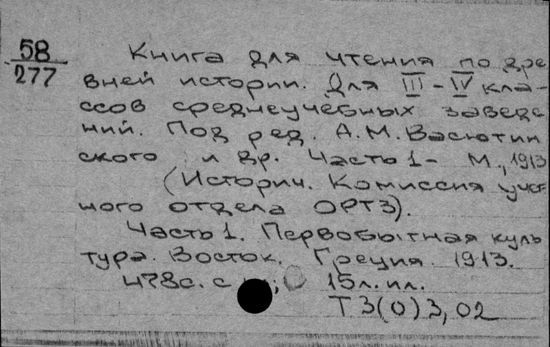 58
277
Книга для чтения по дре
вней истории. Для III-IV кла-
ссов среднеучебных заведе
ний. Под ред. А.М. Васютин
ского и др. Часть 1- М., 1913
(Историч. Комиссия учеб
ного отдела ОРТЗ).
Часть 1. Первобытная куль
тура. Восток. Греция. 1913.
478с. с 15л.ил.
Т3(0)3,02